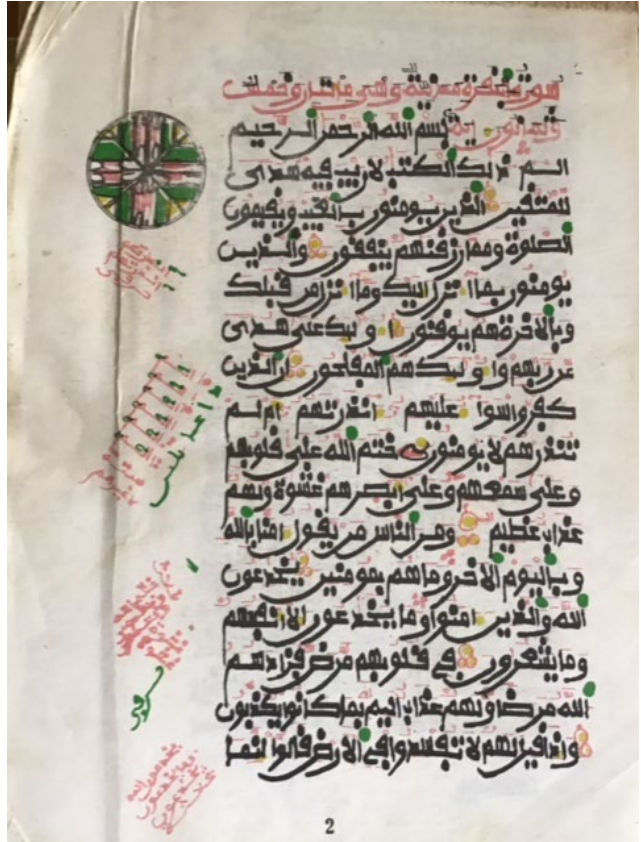 سورة البقرة مدنية وهي مائتان وخمس
وثمانون آية بسم الله الرحمن الرحيم
الم ذلك الكتب لا ريب فيه هدى
للمتقين الذين يومنون بالغيب ويقيمون
الصلوة ومما رزقنهم ينفقون والذين
يومنون بما انزل اليك وما انزل من قبلك
وبالاخرة هم يوقنون اوليك على هدى
من ربهم واوليك هم المفلحون ان الذين
كفروا سوا عليهم انذرتهم ام لم
تنذرهم لا يومنون ختم الله على قلوبهم
وعلى سمعهم وعلى ابصرهم غشوة ولهم
عذاب عظيم ومن الناس من يقول امنا بالله
وباليوم الاخر وما هم بمومنين يخدعون
الله والذين امنوا وما يخدعون الا انفسهم
وما يشعرون في قلوبهم مرض فزادهم
الله مرضا ولهم عذاب اليم بما كانوا يكذبون
واذا قيل لهم لا تفسدوا في الارض قالوا انما
2